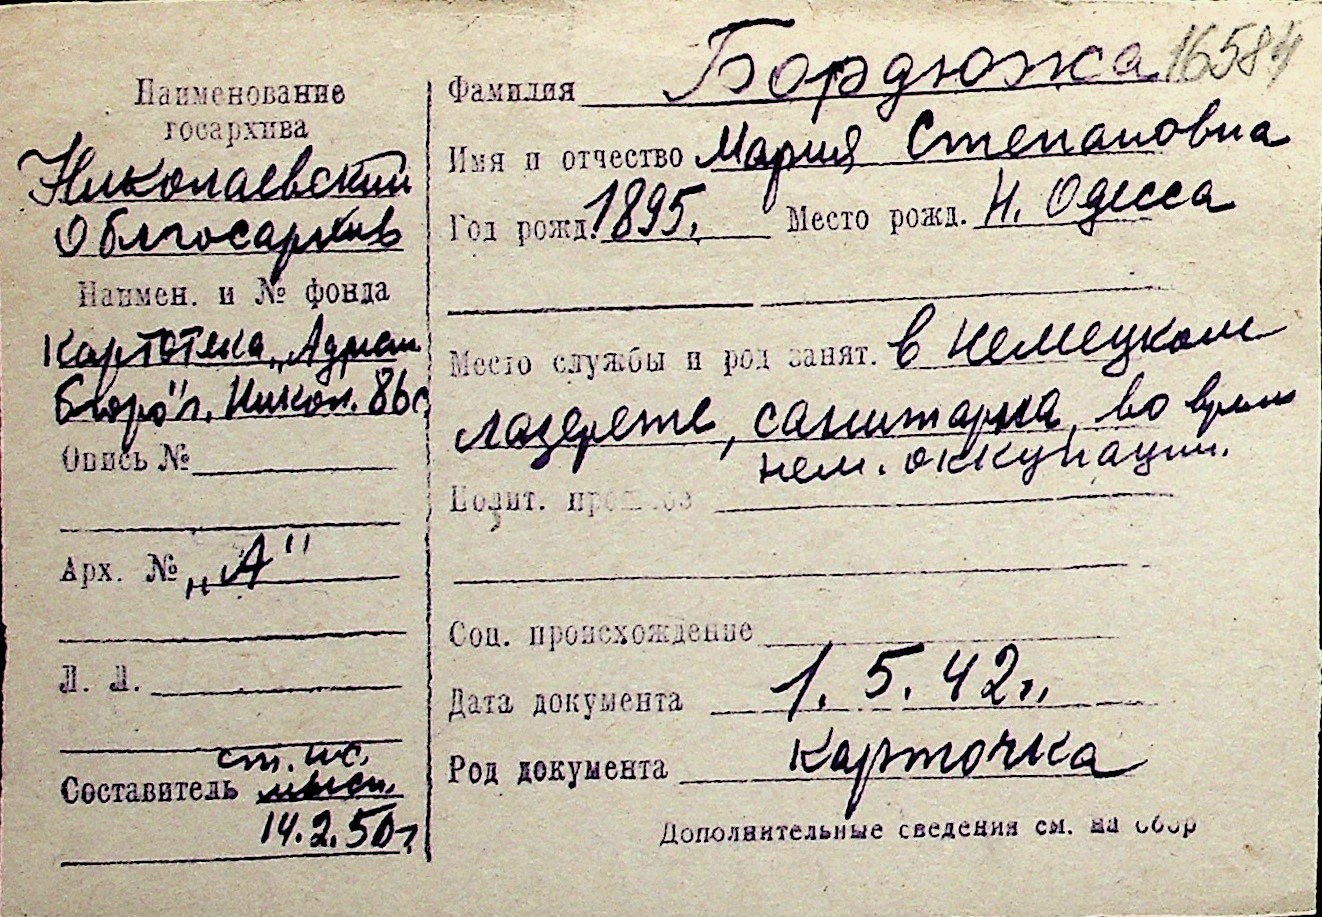 16584
Наименование
госархива
Николаевский
Облгосархив
Наимен. и № фонда
Картотека „Адресн.
бюро" г. Никол.
Опись №
Арх. № „А"
Л. Л.
ст. н/с.
Составитель
14.2.50г.
Фамилия Бордюжа
Имя и отчество Мария Степановна
Год рожд. 1895. Место рожд. Н. Одесса
Место службы и род занят. в немецком
лазерете, санитарка, во время
нем. оккупации.
Полит. прошлое
Соц. происхождение
Дата документа 1. 5. 42г.
Род документа карточка
Дополнительные сведения см. на обор